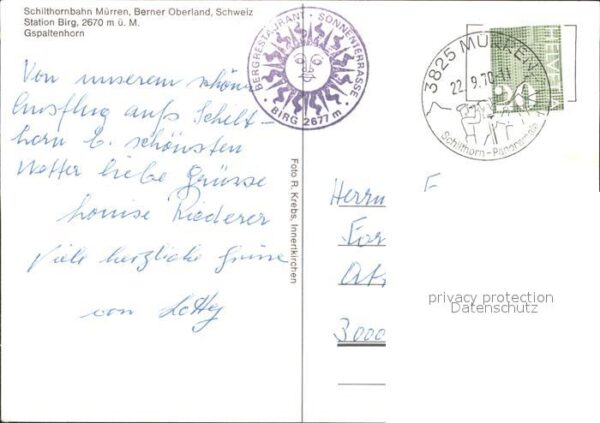 Schilthornbahn Mürren, Berner Oberland, Schweiz
Station Birg, 2670 m ü. M.
Gspaltenhorn
BERGRESTAURANT · SONNENTERRASSE
· BIRG 2677 m ·
3825 MÜRREN
22.9.70-11
Schilthorn-Panorama
HELVETIA
20
Von unserem schönen
Ausflug aufs Schilt-
horn b. schönsten
Wetter liebe Grüsse
Louise Riederer
Viele herzliche Grüsse
von Lotty
Foto R. Krebs, Innertkirchen
Herrn F
3000
privacy protection
Datenschutz